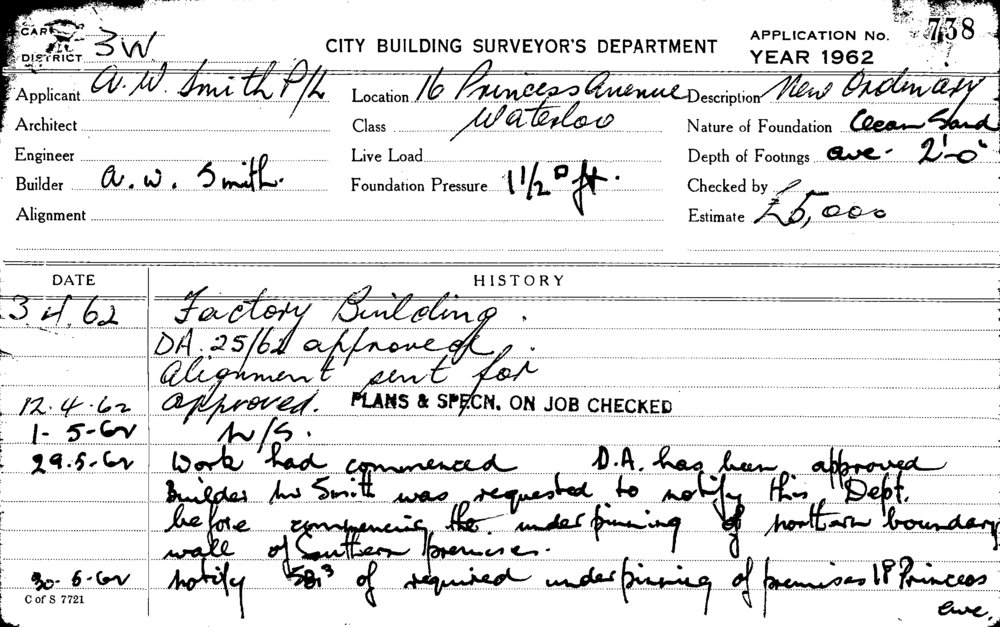 CARD DISTRICT 3W
CITY BUILDING SURVEYOR'S DEPARTMENT
APPLICATION No. 738
YEAR 1962
Applicant A. W. Smith P/L
Location 16 Princess Avenue
Description New Ordinary
Architect
Class Waterloo
Nature of Foundation Clean Sand
Engineer
Live Load
Depth of Footings ave. 2'-0"
Builder A. W. Smith.
Foundation Pressure 1 1/2 □ ft.
Checked by
Alignment
Estimate £5,000
DATE HISTORY
3.4.62 Factory Building.
DA. 25/62 approved.
Alignment sent for
12.4.62 approved. PLANS & SPECN. ON JOB CHECKED
1-5-62 N/S.
29.5.62 Work had commenced D.A. has been approved
Builder Mr Smith was requested to notify this Dept.
before commencing the underpinning of northern boundary
wall of Southern premises.
30-5-62 Notify of required underpinning of premises 18 Princess
Ave.
C of S 7721